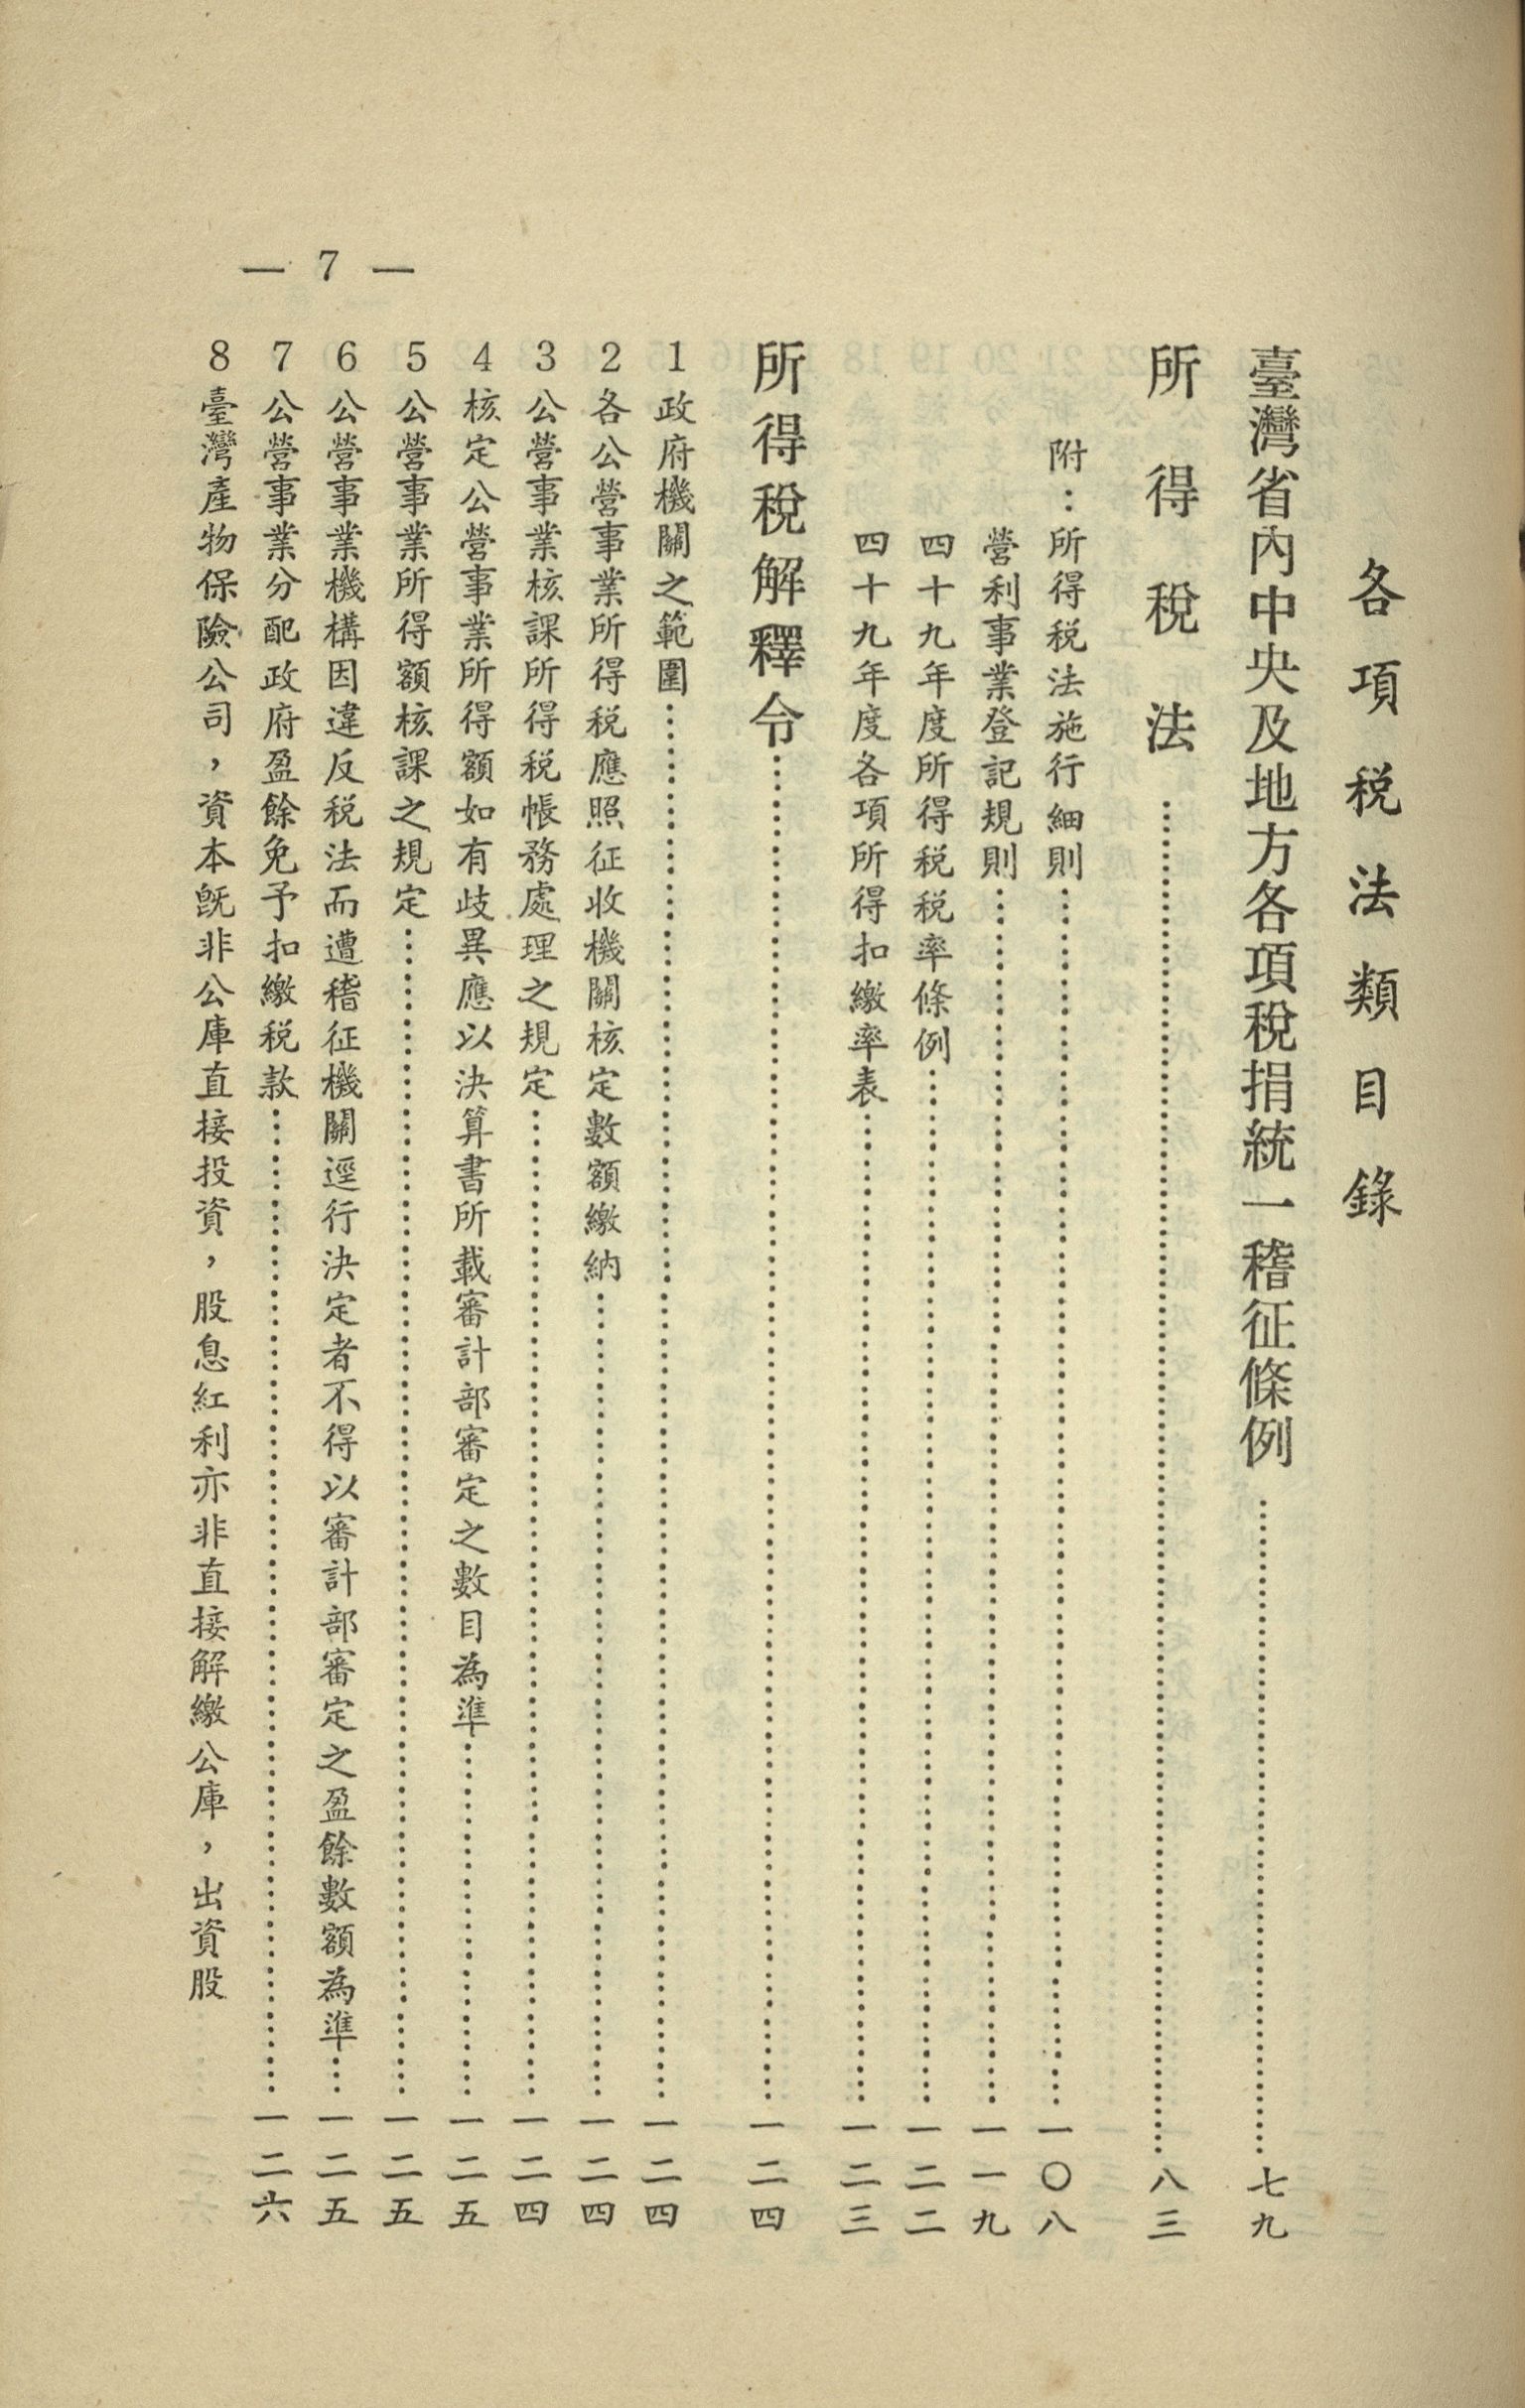 各項税法類目錄
臺灣省內中央及地方各項稅捐統一稽征條例……七九
所得稅法……八三
附：所得税法施行細則……一〇八
營利事業登記規則……一一九
四十九年度所得税税率條例……一二二
四十九年度各項所得扣繳率表……一二三
所得稅解釋令……一二四
1 政府機關之範圍……一二四
2 各公營事業所得税應照征收機關核定數額繳納……一二四
3 公營事業核課所得税帳務處理之規定……一二四
4 核定公營事業所得額如有歧異應以決算書所載審計部審定之數目為準……一二五
5 公營事業所得額核課之規定……一二五
6 公營事業機構因違反税法而遭稽征機關逕行決定者不得以審計部審定之盈餘數額為準……一二五
7 公營事業分配政府盈餘免予扣繳税款……一二六
8 臺灣產物保險公司，資本既非公庫直接投資，股息紅利亦非直接解繳公庫，出資股
— 7 —